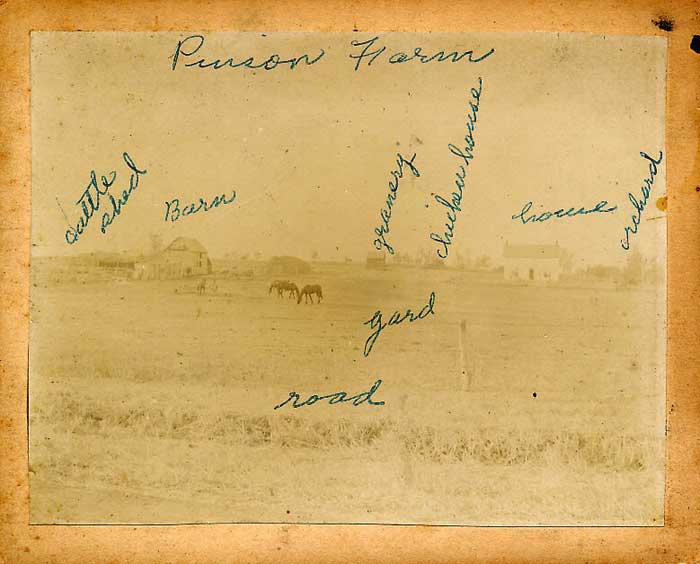 Pinson Farm
cattle
shed
Barn
granery
chicken house
house
orchard
yard
road